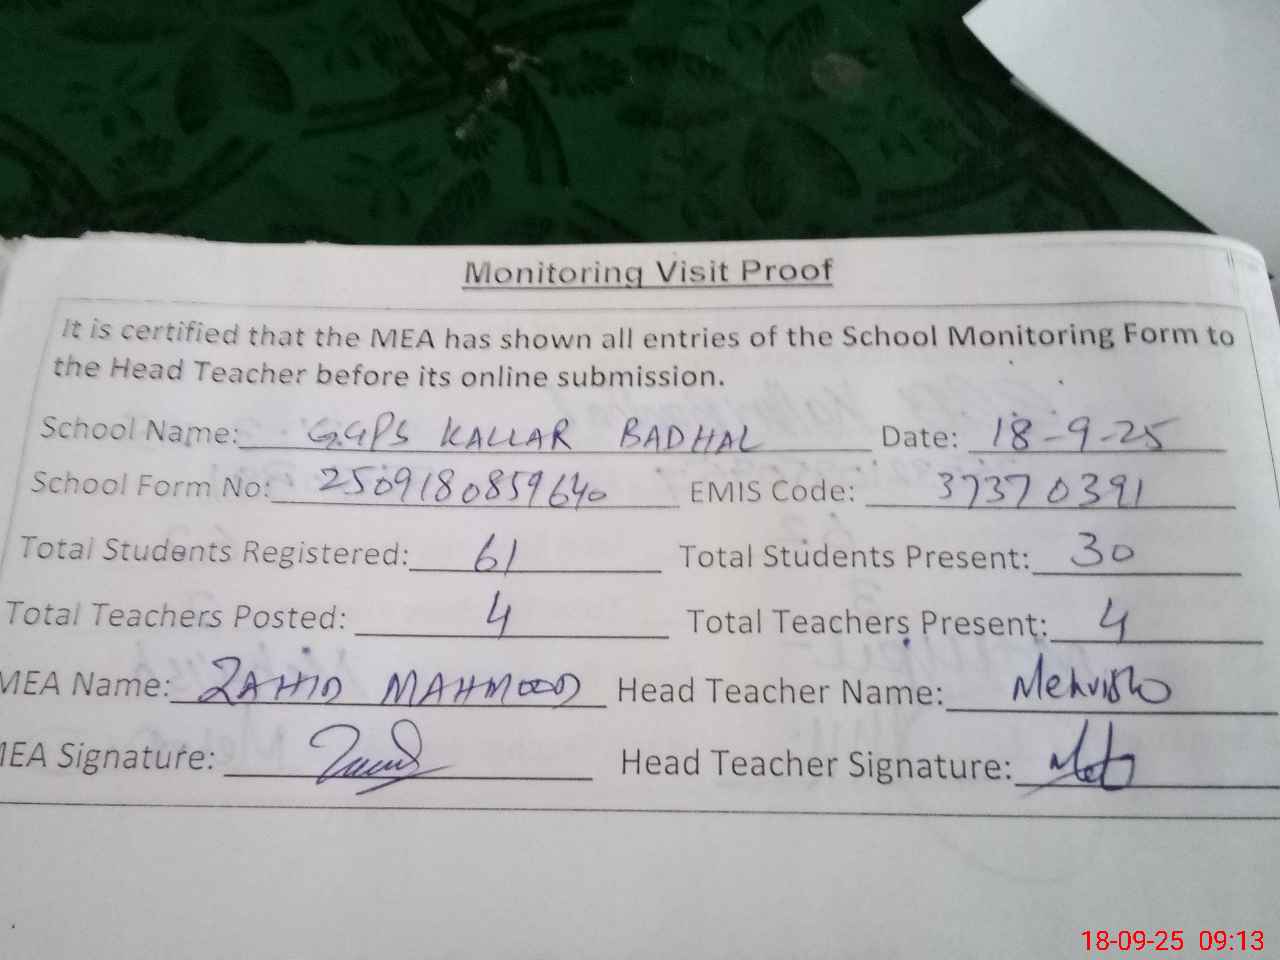 Monitoring Visit Proof
It is certified that the MEA has shown all entries of the School Monitoring Form to
the Head Teacher before its online submission.
School Name: GGPS KALLAR BADHAL Date: 18-9-25
School Form No: 250918085964 EMIS Code: 37370391
Total Students Registered: 61 Total Students Present: 30
Total Teachers Posted: 4 Total Teachers Present: 4
MEA Name: ZAHID MAHMOOD Head Teacher Name: Mehvish
MEA Signature: Head Teacher Signature:
18-09-25 09:13